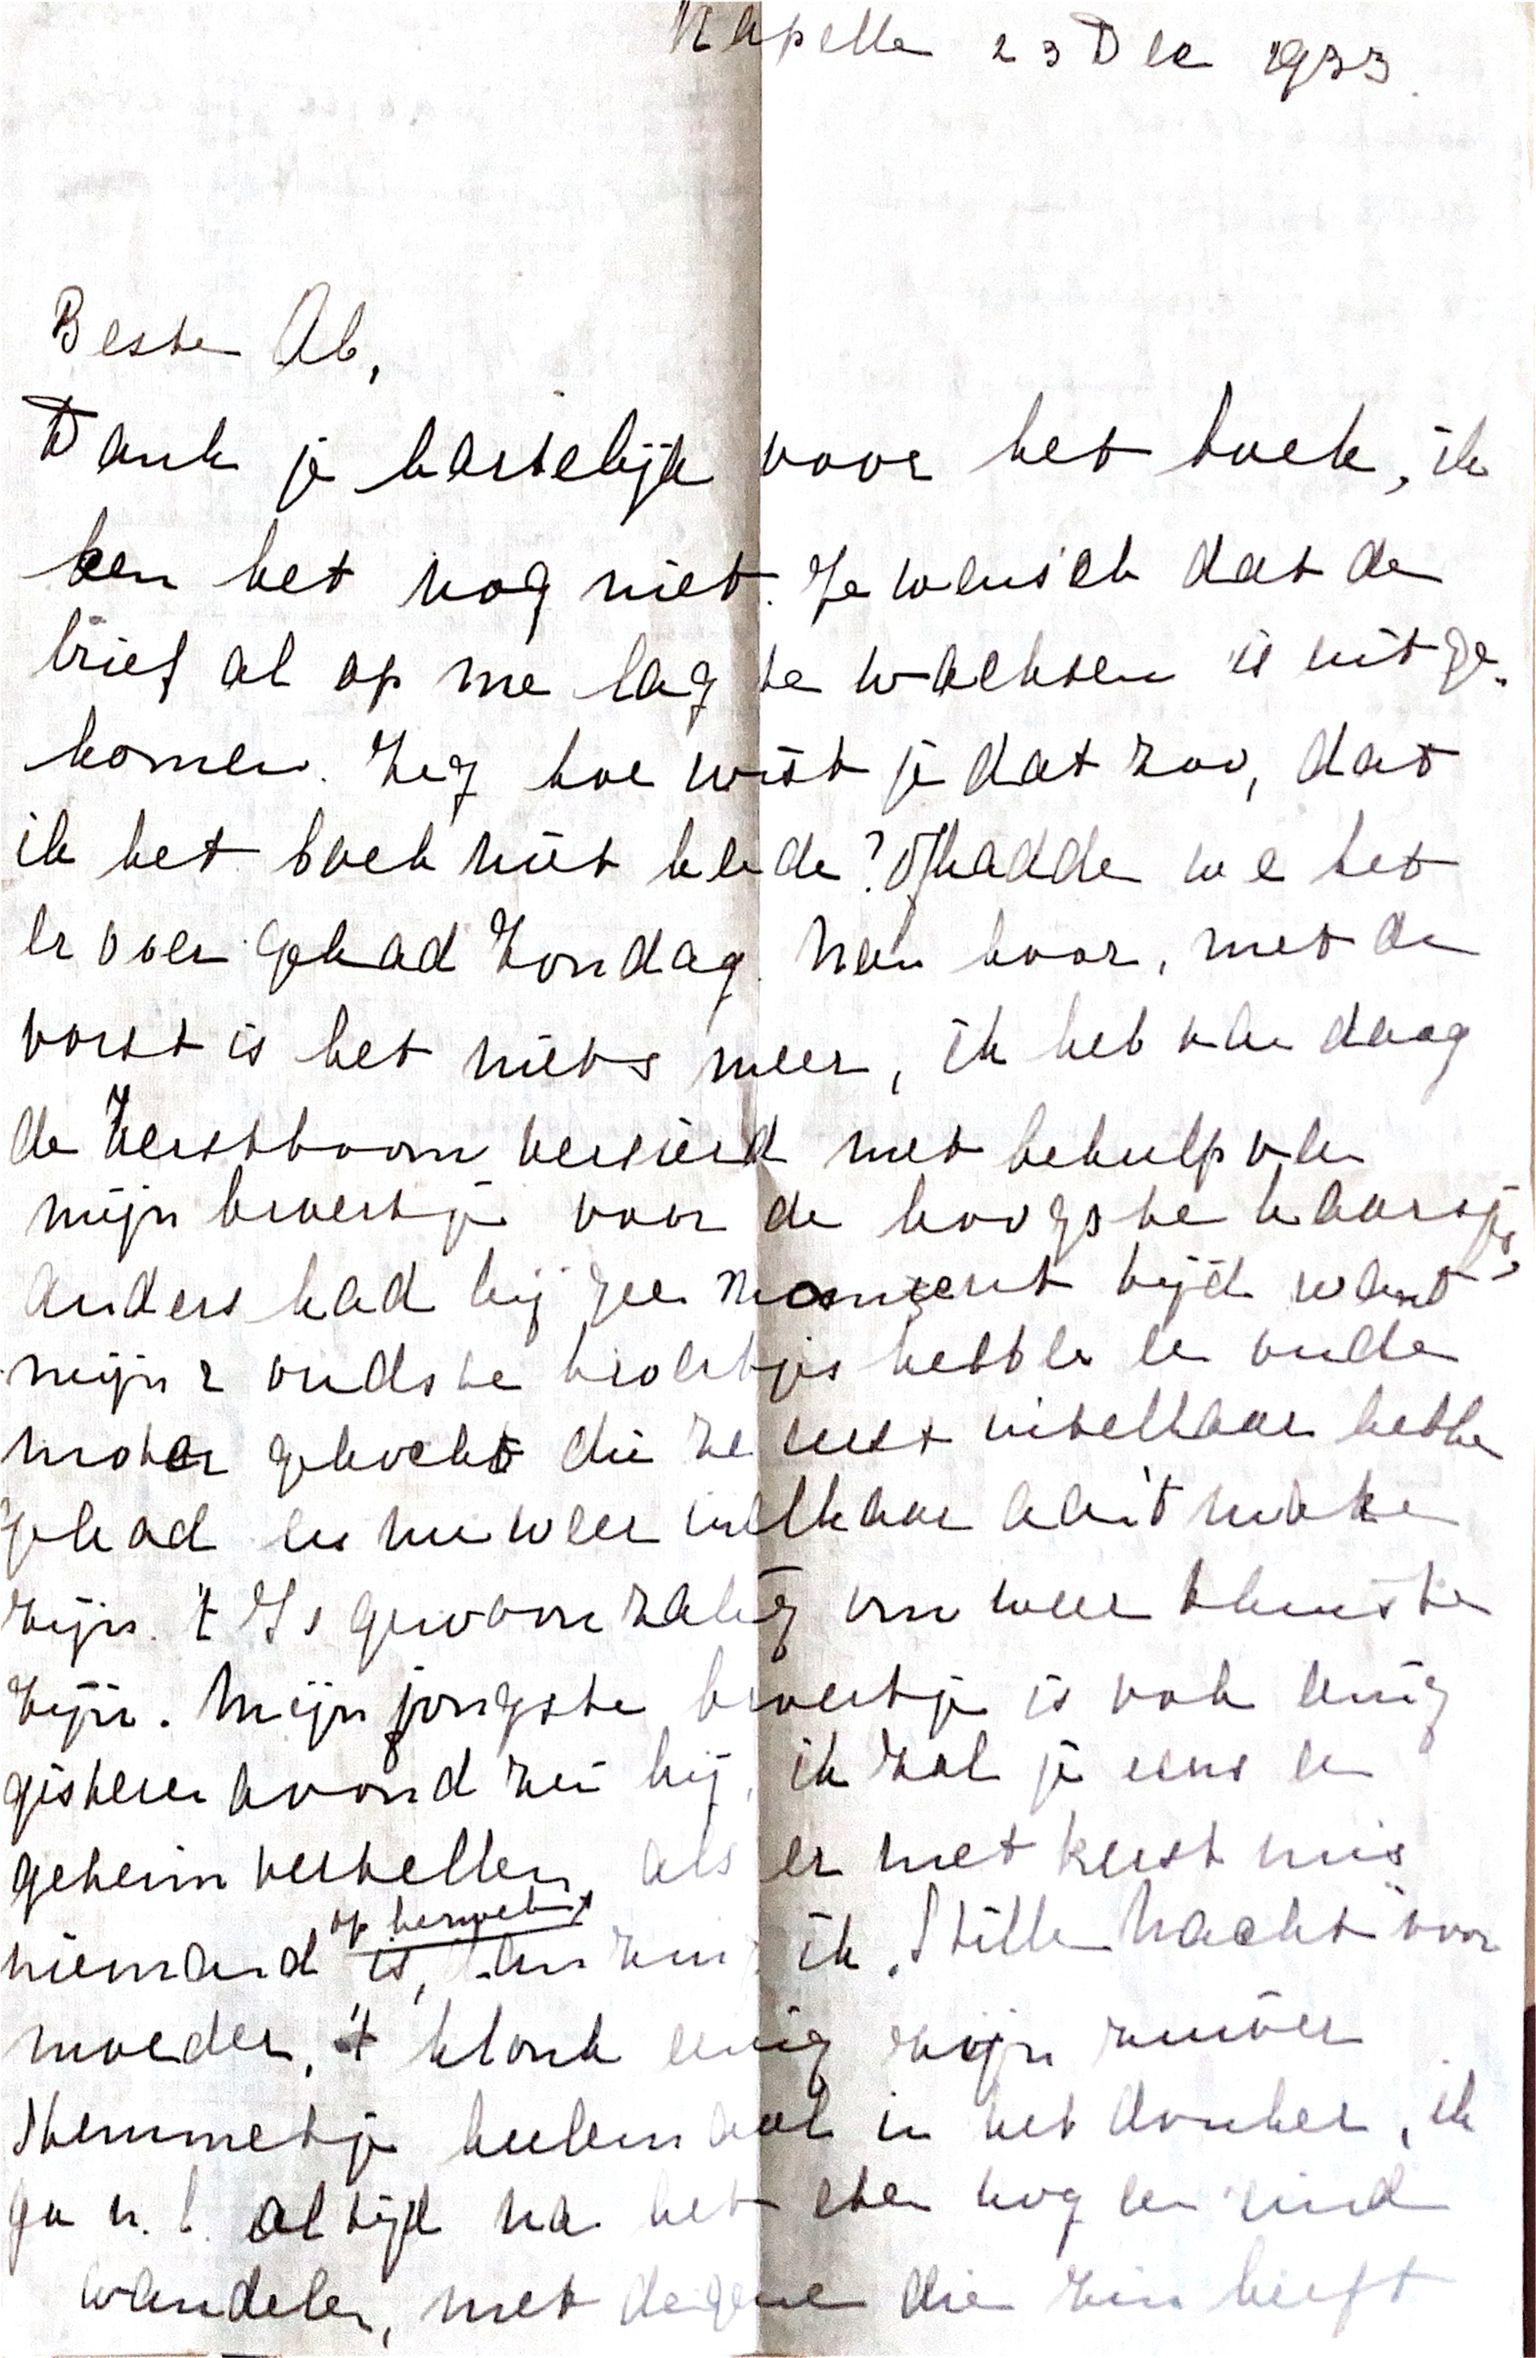 Kapelle 23 Dec 1933.
Beste Ab,
Dank je hartelijk voor het boek, ik
ken het nog niet. Je wensch dat de
brief al op me lag te wachten is uitge-
komen. Zeg hoe wist je dat zoo, dat
ik het boek niet kende? Of hadde we het
er over gehad Zondag. Nou hoor, met de
vorst is het niets meer, ik heb van daag
de Kerstboom versierd met behulp van
mijn broertje voor de hoogste kaarsjes,
anders had hij geen moment tijd want
mijn 2 oudste broertjes hebbe een oude
motor gekocht die ze eerst uitelkaar hebbe
gehad en nu weer inelkaar aan 't make
zijn. 't Is gewoon zalig om weer thuis te
zijn. Mijn jongste broertje is ook eenig
gisteren avond zei hij, ik zal je eens een
geheim vertellen, als er met kerst mis
niemand op bezoek is, dan zing ik „Stille Nacht" voor
moeder, 't klonk eenig zijn zuiver
stemmetje heelemaal in het donker, ik
ga n.l. altijd na het eten nog een eind
wandelen, met degene die zin heeft